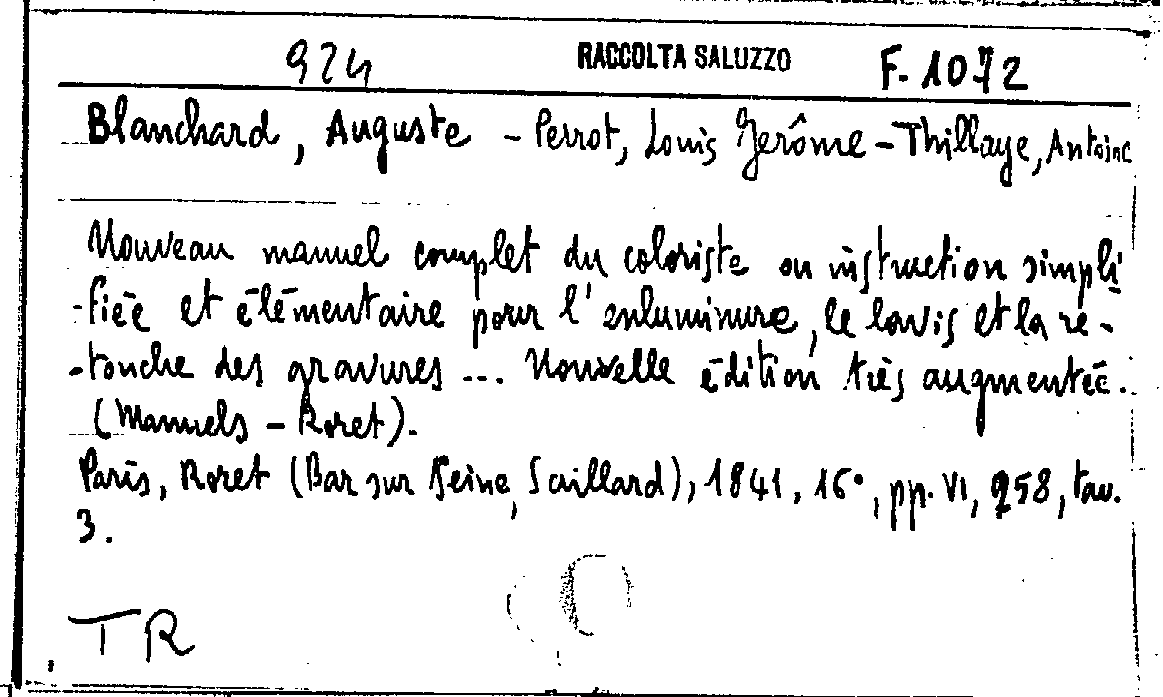 924 RACCOLTA SALUZZO F. 1072
Blanchard, Auguste - Perrot, Louis Jerôme - Thillaye, Antoine
Nouveau manuel complet du coloriste ou instruction simpli
-fiée et élémentaire pour l'enluminure, le lavis et la re-
-touche des gravures ... Nouvelle édition très augmentée.
(Manuels - Roret).
Paris, Roret (Bar sur Seine, Saillard), 1841, 16°, pp. VI, 258, tav.
3.
TR